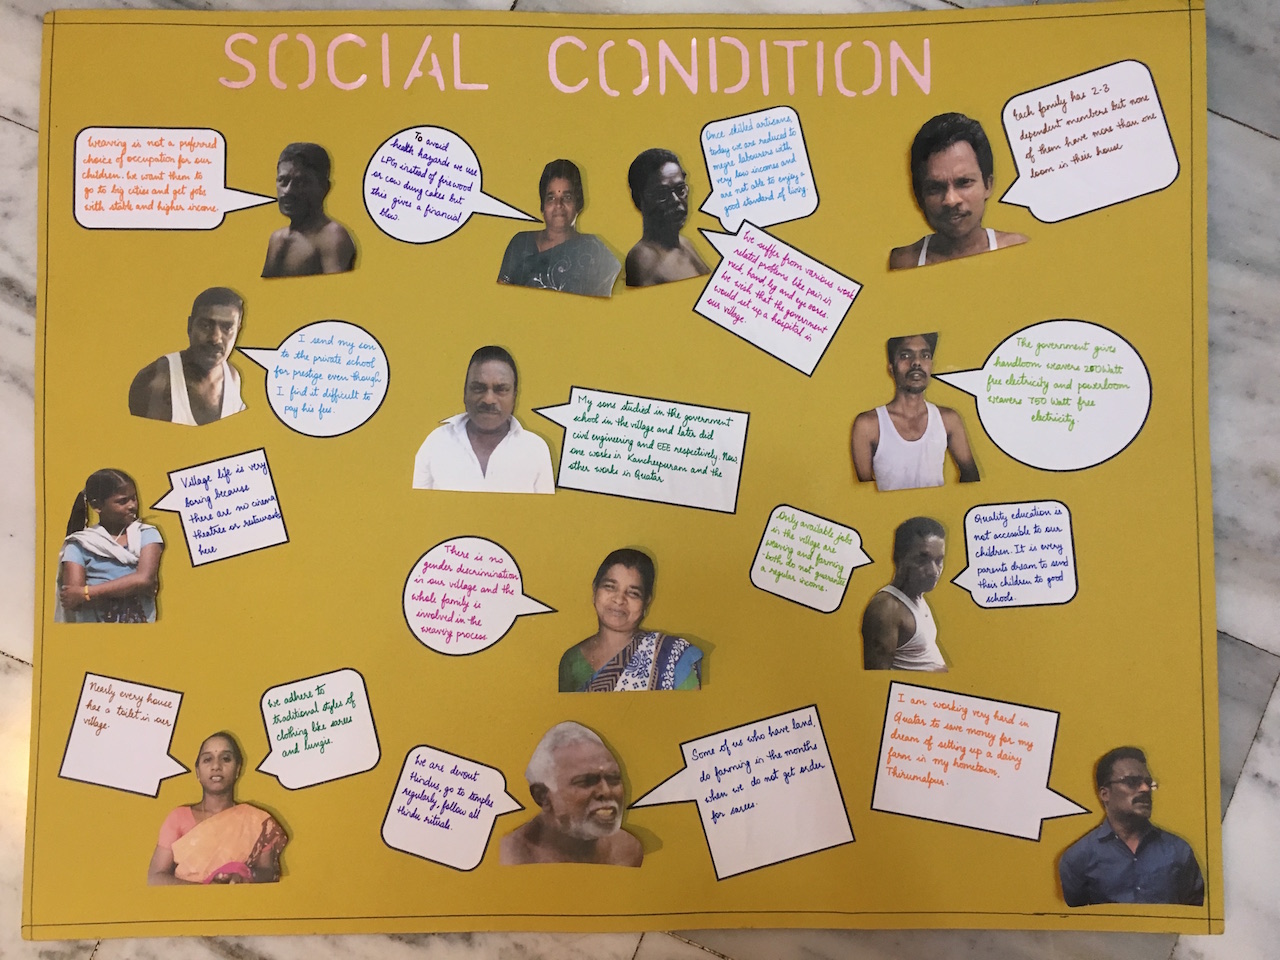 SOCIAL CONDITION
Weaving is not a preferred
choice of occupation for our
children. We want them to
go to big cities and get jobs
with stable and higher income.
To avoid
health hazards we use
LPG instead of firewood
or cow dung cakes but
this gives a financial
blow.
Once skilled artisans,
today we are reduced to
megre labourers with
very low incomes and
are not able to enjoy a
good standard of living.
We suffer from various work
related problems like pain in
neck, hand, leg and eye sores.
We wish that the government
would set up a hospital in
our village.
Each family has 2-3
dependent members but none
of them have more than one
loom in their house
I send my son
to the private school
for prestige even though
I find it difficult to
pay his fees.
My sons studied in the government
school in the village and later did
civil engineering and EEE respectively. Now,
one works in Kancheepuram and the
other works in Quatar
The government gives
handloom weavers 200Watt
free electricity and powerloom
weavers 750 Watt free
electricity.
Village life is very
boring because
there are no cinema
theatres or restaurants
here
There is no
gender discrimination
in our village and the
whole family is
involved in the
weaving process
Only available jobs
in the village are
weaving and farming
-both do not guarantee
a regular income.
Quality education is
not accessible to our
children. It is every
parents dream to send
their children to good
schools.
Nearly every house
has a toilet in our
village.
We adhere to
traditional styles of
clothing like sarees
and lungis.
We are devout
Hindus, go to temples
regularly, follow all
Hindu rituals.
Some of us who have land,
do farming in the months
when we do not get order
for sarees.
I am working very hard in
Quatar to save money for my
dream of setting up a dairy
farm in my hometown,
Thirumalpur.